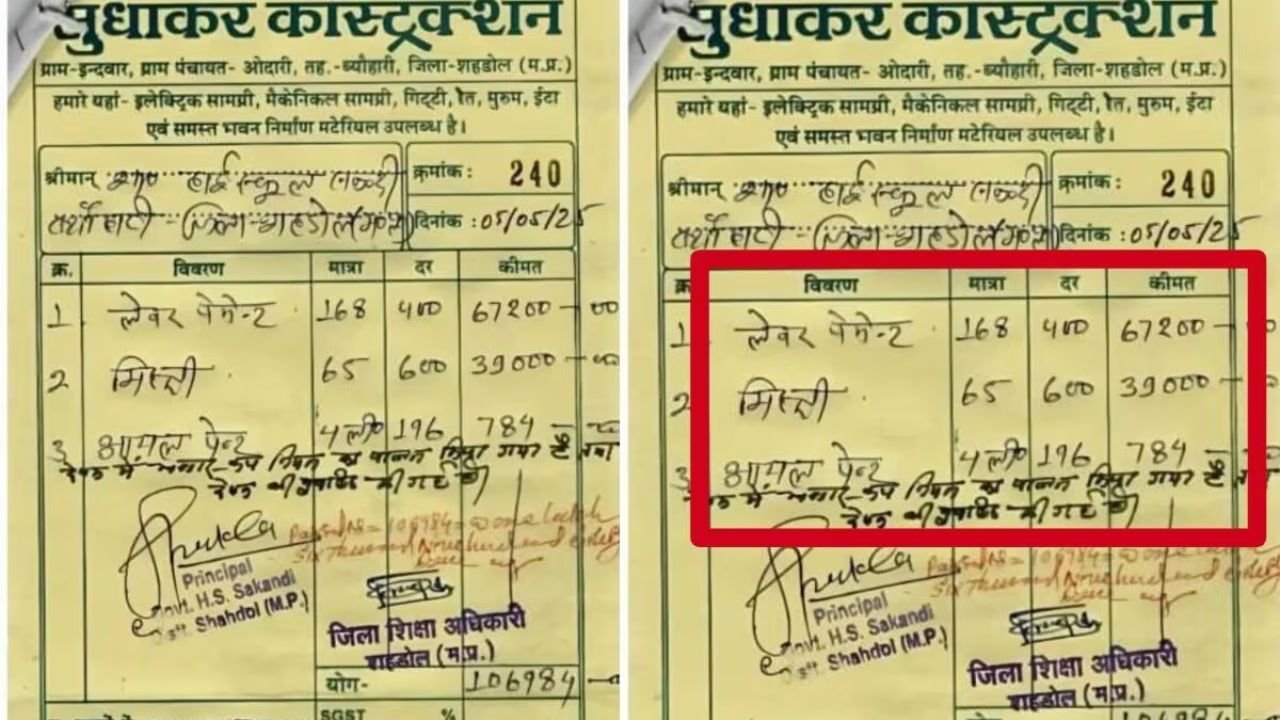 सुधाकर कास्ट्रक्शन
ग्राम-इन्दवार, ग्राम पंचायत- ओदारी, तह.-ब्यौहारी, जिला-शहडोल (म.प्र.)
हमारे यहां- इलेक्ट्रिक सामग्री, मैकेनिकल सामग्री, गिट्टी, रेत, मुरुम, ईटा
एवं समस्त भवन निर्माण मटेरियल उपलब्ध है।
श्रीमान् हाई स्कूल क्रमांक : 240
दिनांक : 05/05/25
क्र. विवरण मात्रा दर कीमत
1 लेवर पेमेन्ट 168 400 67200 - 00
2 मिस्त्री 65 600 39000 - 00
3 आयल पेन्ट 4 ली० 196 784
देयक में भण्डार क्रय नियम का पालन किया गया है तथा
की गई थी
Shukla
Passed Rs = 106984 = One Lakh
Six thousand Nine hundred and eighty
Principal
Govt. H.S. Sakandi
Distt. Shahdol (M.P.)
जिला शिक्षा अधिकारी
शहडोल (म.प्र.)
योग- 106984
SGST %
सुधाकर कास्ट्रक्शन
ग्राम-इन्दवार, ग्राम पंचायत- ओदारी, तह.-ब्यौहारी, जिला-शहडोल (म.प्र.)
हमारे यहां- इलेक्ट्रिक सामग्री, मैकेनिकल सामग्री, गिट्टी, रेत, मुरुम, ईटा
एवं समस्त भवन निर्माण मटेरियल उपलब्ध है।
श्रीमान् हाई स्कूल क्रमांक : 240
दिनांक : 05/05/25
क्र विवरण मात्रा दर कीमत
1 लेवर पेमेन्ट 168 400 67200
2 मिस्त्री 65 600 39000
3 आयल पेन्ट 4 ली० 196 784
देयक में भण्डार क्रय नियम का पालन किया गया है
की गई थी
Shukla
Passed Rs = 106984 = One
Six thousand Nine hundred and
Principal
Govt. H.S. Sakandi
Distt. Shahdol (M.P.)
जिला शिक्षा अधिकारी
शहडोल (म.प्र.)
106984